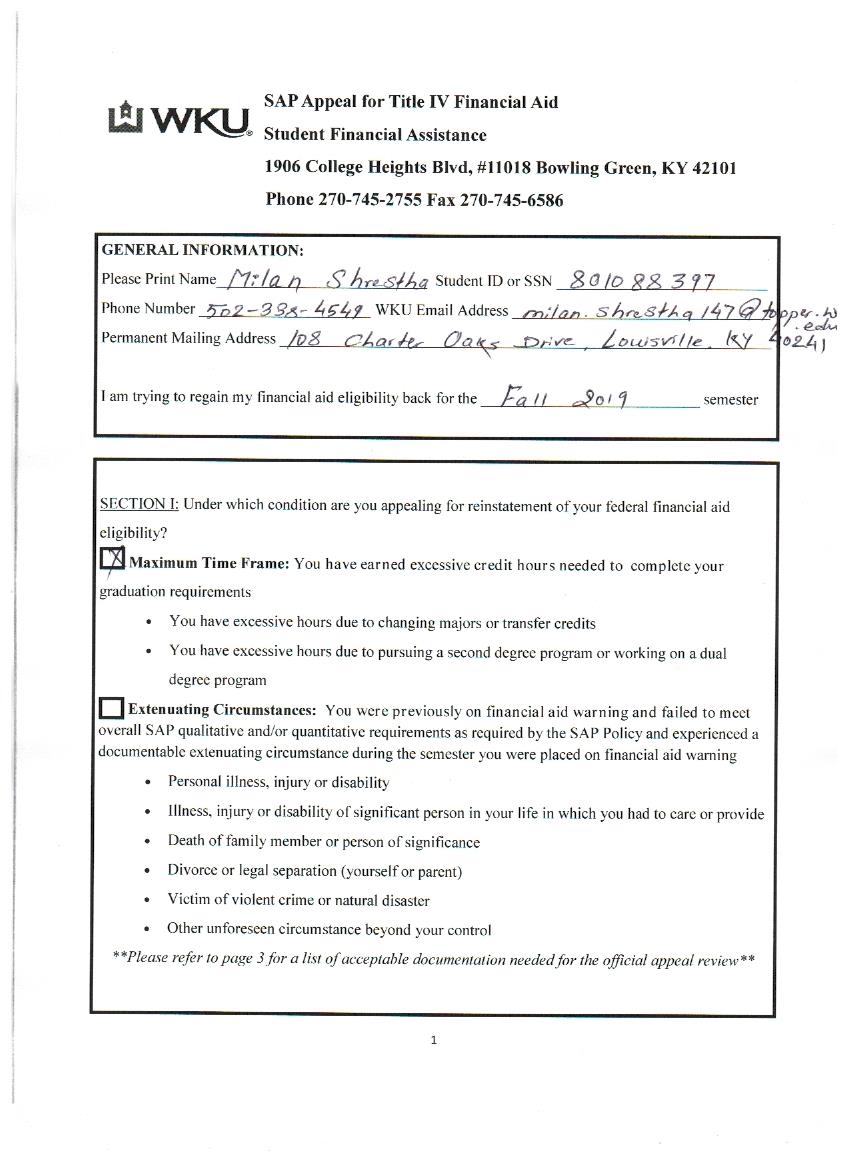 WKU®
SAP Appeal for Title IV Financial Aid
Student Financial Assistance
1906 College Heights Blvd, #11018 Bowling Green, KY 42101
Phone 270-745-2755 Fax 270-745-6586
GENERAL INFORMATION:
Please Print Name Milan Shrestha Student ID or SSN 801088397
Phone Number 502-338-4549 WKU Email Address milan.shrestha147@topper.w
.edu
Permanent Mailing Address 108 Charter Oaks Drive, Louisville, KY 40241
I am trying to regain my financial aid eligibility back for the Fall 2019 semester
SECTION I: Under which condition are you appealing for reinstatement of your federal financial aid
eligibility?
Maximum Time Frame: You have earned excessive credit hours needed to complete your
graduation requirements
• You have excessive hours due to changing majors or transfer credits
• You have excessive hours due to pursuing a second degree program or working on a dual
degree program
Extenuating Circumstances: You were previously on financial aid warning and failed to meet
overall SAP qualitative and/or quantitative requirements as required by the SAP Policy and experienced a
documentable extenuating circumstance during the semester you were placed on financial aid warning
• Personal illness, injury or disability
• Illness, injury or disability of significant person in your life in which you had to care or provide
• Death of family member or person of significance
• Divorce or legal separation (yourself or parent)
• Victim of violent crime or natural disaster
• Other unforeseen circumstance beyond your control
**Please refer to page 3 for a list of acceptable documentation needed for the official appeal review**
1